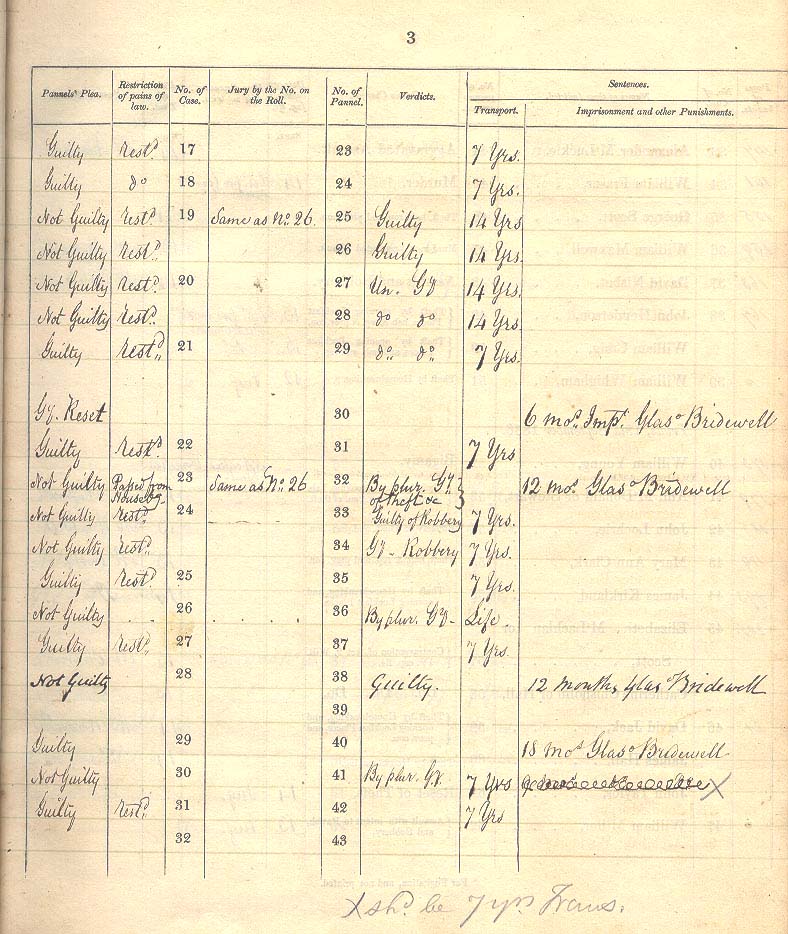 3
Pannels' Plea. Restriction of pains of law. No. of Case. Jury by the No. on the Roll. No. of Pannel. Verdicts. Sentences.
Transport. Imprisonment and other Punishments.
Guilty Restd. 17 23 7 Yrs.
Guilty do 18 24 7 Yrs.
Not Guilty restd. 19 Same as No. 26. 25 Guilty 14 Yrs
Not Guilty restd. 26 Guilty 14 Yrs.
Not Guilty restd. 20 27 Un. Gy 14 Yrs.
Not Guilty restd. 28 do do 14 Yrs
Guilty restd. 21 29 do do. 7 Yrs.
Gy. Reset 30 6 mos. Impt. Glaso Bridewell
Guilty Restd. 22 31 7 Yrs
Not Guilty Passed from Houseb.g 23 Same as No. 26 32 By plur. Gy. of theft &c 12 mos. Glaso Bridewell
Not Guilty restd. 24 33 Guilty of Robbery 7 Yrs.
Not Guilty restd. 34 Gy - Robbery 7 Yrs.
Guilty restd. 25 35 7 Yrs.
Not Guilty 26 36 By plur. Gy - Life
Guilty restd. 27 37 7 Yrs.
Not Guilty 28 38 Guilty. 12 months Glaso Bridewell
39
Guilty 29 40 18 mos Glaso Bridewell
Not Guilty 30 41 By plur. Gy. 7 Yrs X
Guilty restd. 31 42 7 Yrs
32 43
X shd. be 7 yrs Trans.